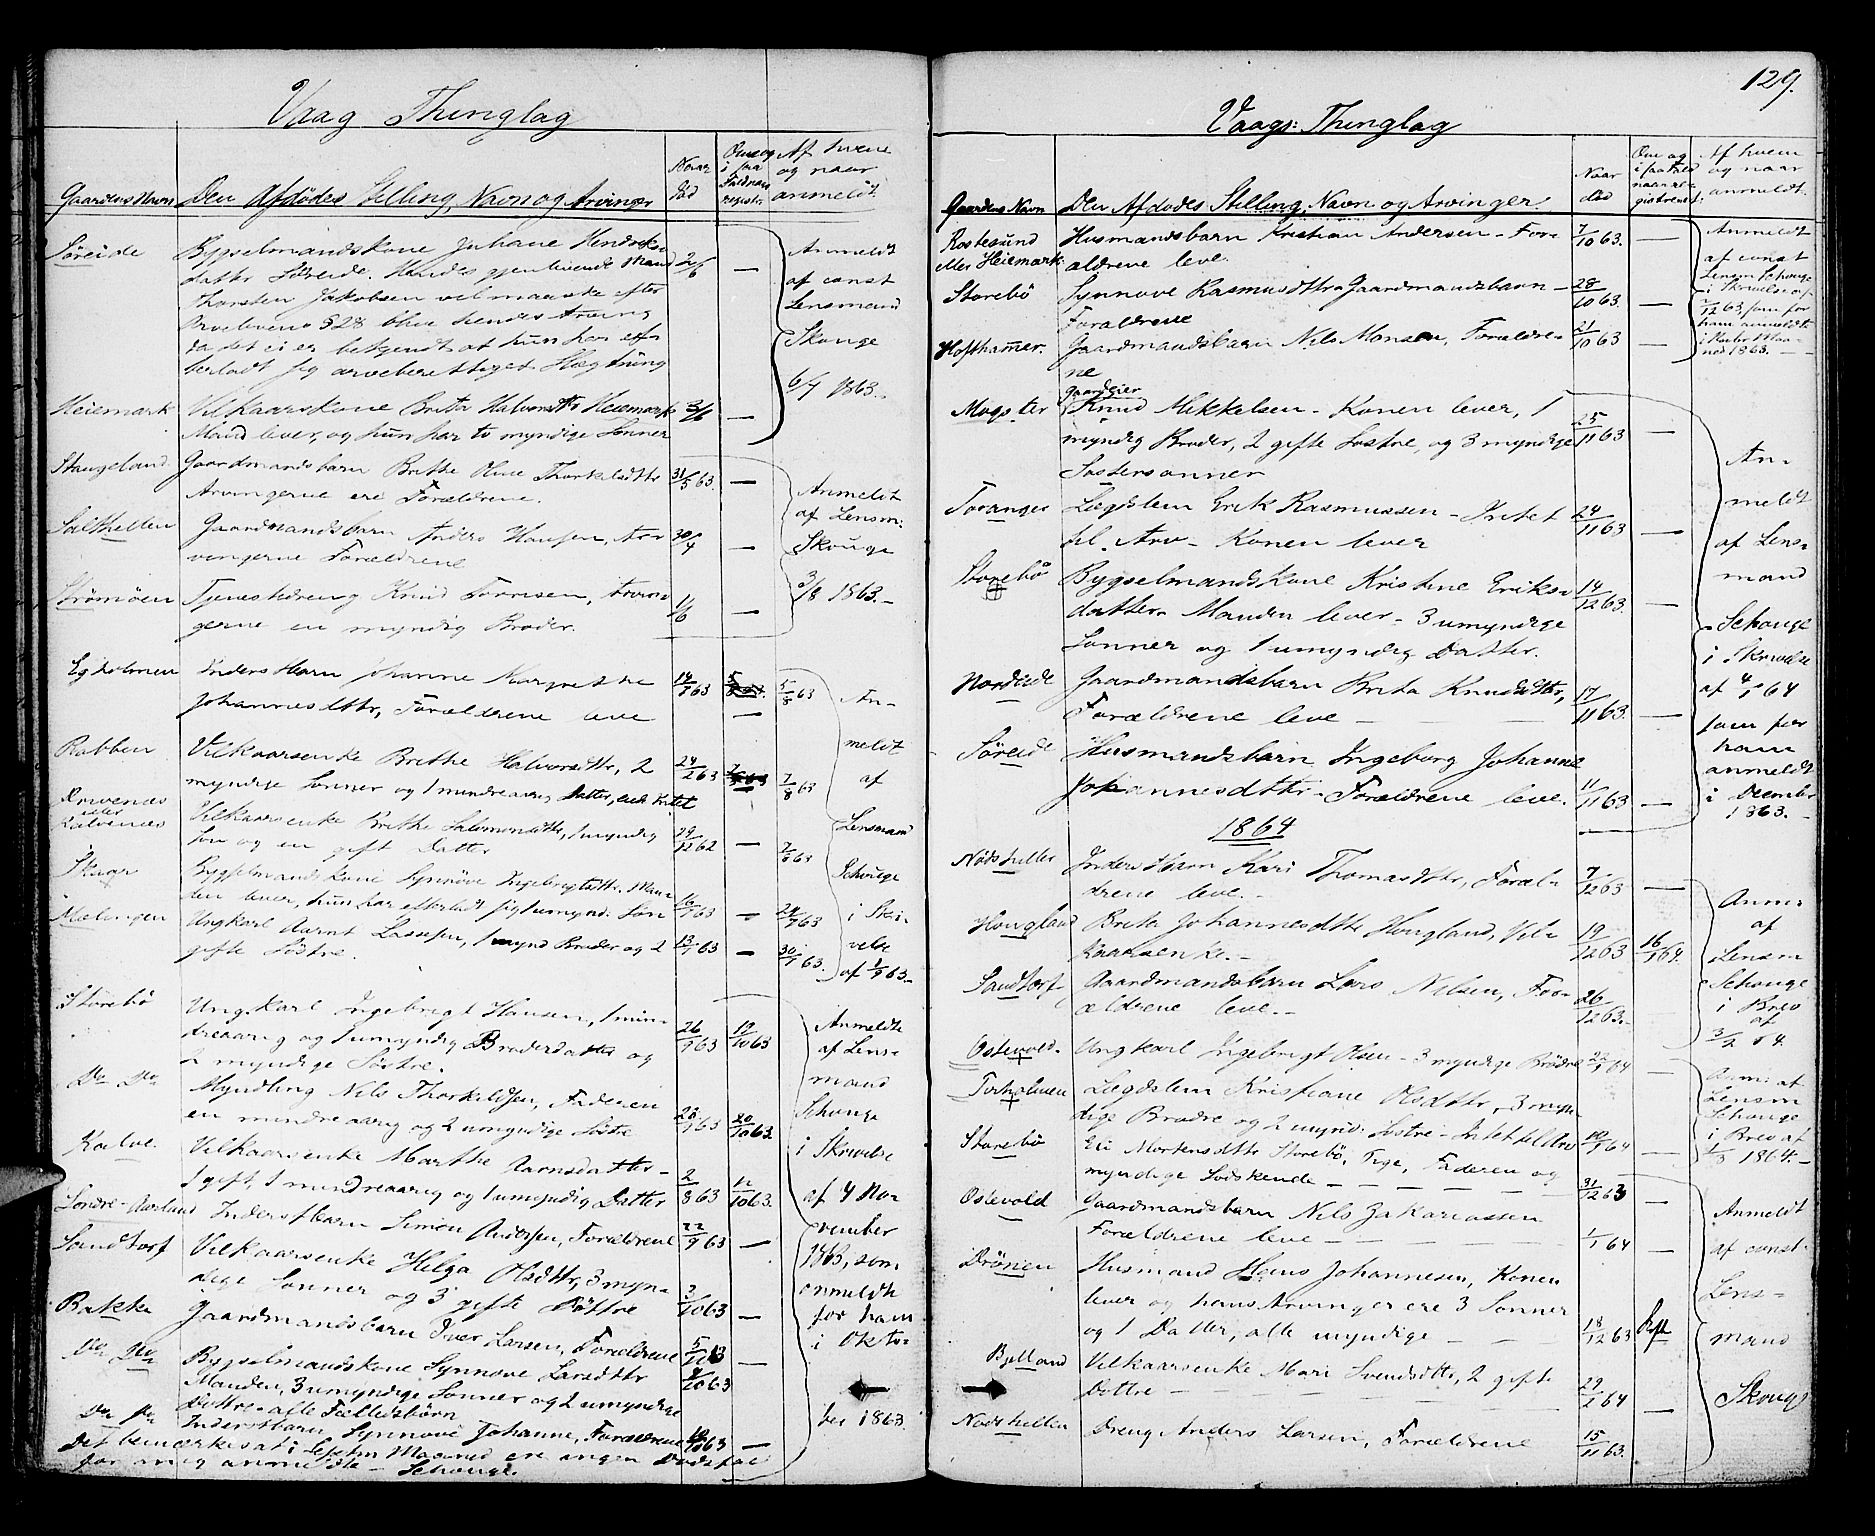 Vaag Thinglag
Gaardens Navn
Den Afdödes Stilling, Navn og Arvinger
Naar
død
Om og
i saa
Fald naar
registr.
Af hvem
og naar
anmeldt.
Søreide
Bygselmandskone Johane Hendriks
datter Söreide. Hendes gjenlevende Mand
Thorsten Jakobsen vil maaske efter
Arveloven § 28 blive hendes Arving
da det ei er bekjendt at hun har efter
ladt sig arveberettiget Slægtning
2/6
—
Anmeldt
af const
Lensmand
Skouge
6/7 1863.
Heiemark
Vilkaarskone Brita Halvorsdttr Heiemark
Mand lever, og hun har to myndige Sönner
3/6
—
Stangeland
Gaardmandsbarn Brithe Oline Thorkelsdttr
Arvingerne ere Forældrene.
31/5 63.
—
Anmeldt
af Lensm:
Skouge
3/8 1863.—
Salthellen
Gaardmandsbarn Anders Hansen, Arv-
ingerne Forældrene
30/4
—
Strömöen
Tjenestedreng Knud Törrisen, Arvin-
gerne en myndig Broder.
1/6
—
Egholmen
Inderstbarn Johanne Margrethe
Johannesdttr, Forældrene leve
14/7 63
—
5/8 63
An-
meldt
af
Lensmand
Schouge
i Skri-
velse
af 1/9 63.
Rabben
Vilkaarsenke Brithe Halvorsdttr, 2
myndige Sönner og 1 mindreaarig Datter, Intet
24/2 63
7/8 63
Drivenes
eller
Kalvenes
Vilkaarsenke Brithe Salomonsdttr, 1 myndig
Sön og en gift Datter
29/12 62
—
7/8 63
Skaar
Bygselmandskone Synnöve Ingebrigtsdttr. Man-
den lever, hun har efterladt sig 1 umynd: Sön
16/7 63
—
24/7 63
Mælingen
Ungkarl Aarnt Lassesen, 1 mynd Broder og 2
gifte Söstre.
13/7 63
—
30/7 63.
Storebö
Ungkarl Ingebrigt Hansen, 1 min-
dreaarig og 1 umyndig Broderdatter og
2 myndige Söstre.
26/9 63
19/10 63
Anmeldt
af Lens-
mand
Schouge
i Skrivelse
af 4 No-
vember
1863, som
anmeldte
for ham
i Okto-
ber 1863
Do Do
Myndling Nils Thorkildsen, Faderen
en mindreaarig og 2 umyndige Söstre
28/9 63
20/10 63.
Kalve.
Vilkaarsenke Marthe Aarnsdatter—
1 gift, 1 mindreaarig og 1 umyndig Datter
2/8 63
12/10 63.
Sondre-Aarland
Inderstbarn Simon Andersen, Forældrene
22/9 63
—
Sandtorf
Vilkaarsenke Helga Olsdttr, 3 myn-
dige Sonner og 3 gifte Döttre
3/10 63
—
Bakke
Gaardmandsbarn Iver Larsen, Forældrene
5/10 63
—
Do Do
Bygselmandskone Synnove Larsdttr
Manden, 3 umyndige Sonner og 2 umyndige
Döttre — alle Fællesbörn
9/10 63
Do Do
Inderstbarn Synnöve Johanne, Forældrene
18/10 63
—
Det bemærkes at i Septbr Maaned ere ingen Dødsfal
for mig anmeldte — Schouge.
129.
Vaags: Thinglag
Gaardens Navn
Den Afdödes Stilling, Navn og Arvinger
Naar
død
Om og
i saa Fald
naar re-
gistreret:
Af hvem
og naar
anmeldt.
Rostesund
eller Heiemark
Husmandsbarn Kristian Andersen — For-
ældrene leve.
7/10 63.
—
Anmeldt
af const
Lensm Schouge
i Skrivelse af
1/12 63, som for
ham anmeldte
i Novbr Maa-
ned 1863. —
Storebö
Synnove Rasmusdttr Gaardmandsbarn —
Forældrene
28/10 63.
—
Hofthamer.
Gaardmandsbarn Nils Monsen, Forældre-
ne
21/10 63
—
Møgster
Gaardeier
Knud Mikkelsen — Konen lever, 1
myndig Broder, 2 gifte Söstre, og 3 myndige
Söstersönner
25/11 63
—
An-
meldt
af Lens-
mand
Schouge
i Skrivelse
af 4/1 64
som for
ham
anmeldt
i Decembr
1863. —
Toranger
Lægdslem Erik Rasmussen — Intet
til Arv — Konen lever
24/11 63
—
Storebö
Bygselmandskone Kristine Eriks-
datter. Manden lever — 3 umyndige
Sonner og 1 umyndig Datter.
14/12 63.
—
Nordeide
Gaardmandsbarn Brita Knudsdttr,
Forældrene leve —
17/11 63.
—
Søreide
Husmandsbarn Ingeborg Johanne
Johannesdttr — Forældrene leve.
11/11 63
—
1864
Nödshellen
Inderstbarn Kari Thomasdttr, Foræl-
drene leve. —
7/12 63
—
Anm:
af
Lensm
Schouge
i Brev
af
3/2 64.
Hougland
Brita Johannesdttr Hougland, Vil-
kaarsenke. —
19/12 63
16/1 64.
Sandtorf
Gaardmandsbarn Lars Nilsen, For-
ældrene leve. —
26/12 63. —
Østevold.
Ungkarl Ingebrigt Olsen — 3 myndige Brödre
22/1 64
—
Anm: af
Lensm
Schouge
i Brev af
1/3 1864. —
Torholmen
Lægdslem Kristiane Olsdttr, 3 myn-
dige Brodre og 2 mynd: Sostre — Intet til Arv
20/1 64
—
Storebö
Eli Mortensdttr Storebö, Pige, Faderen og
myndige Sodskende —
31/12 63
—
Anmeldt
af const.
Lens-
mand
Skouge
Østevold
Gaardmandsbarn Nils Zakariassen
Forældrene leve —
1/1 64
—
Drönen
Husmand Hans Johannesen, Konen
lever og hans Arvinger ere 3 Sonner
og 1 Datter, alle myndige —
18/12 63
Bjelland
Vilkaarsenke Mari Svendsdttr, 2 gifte
Döttre —
29/1 64
—
Nödshellen
Dreng Anders Larsen, Forældrene
15/11 63.